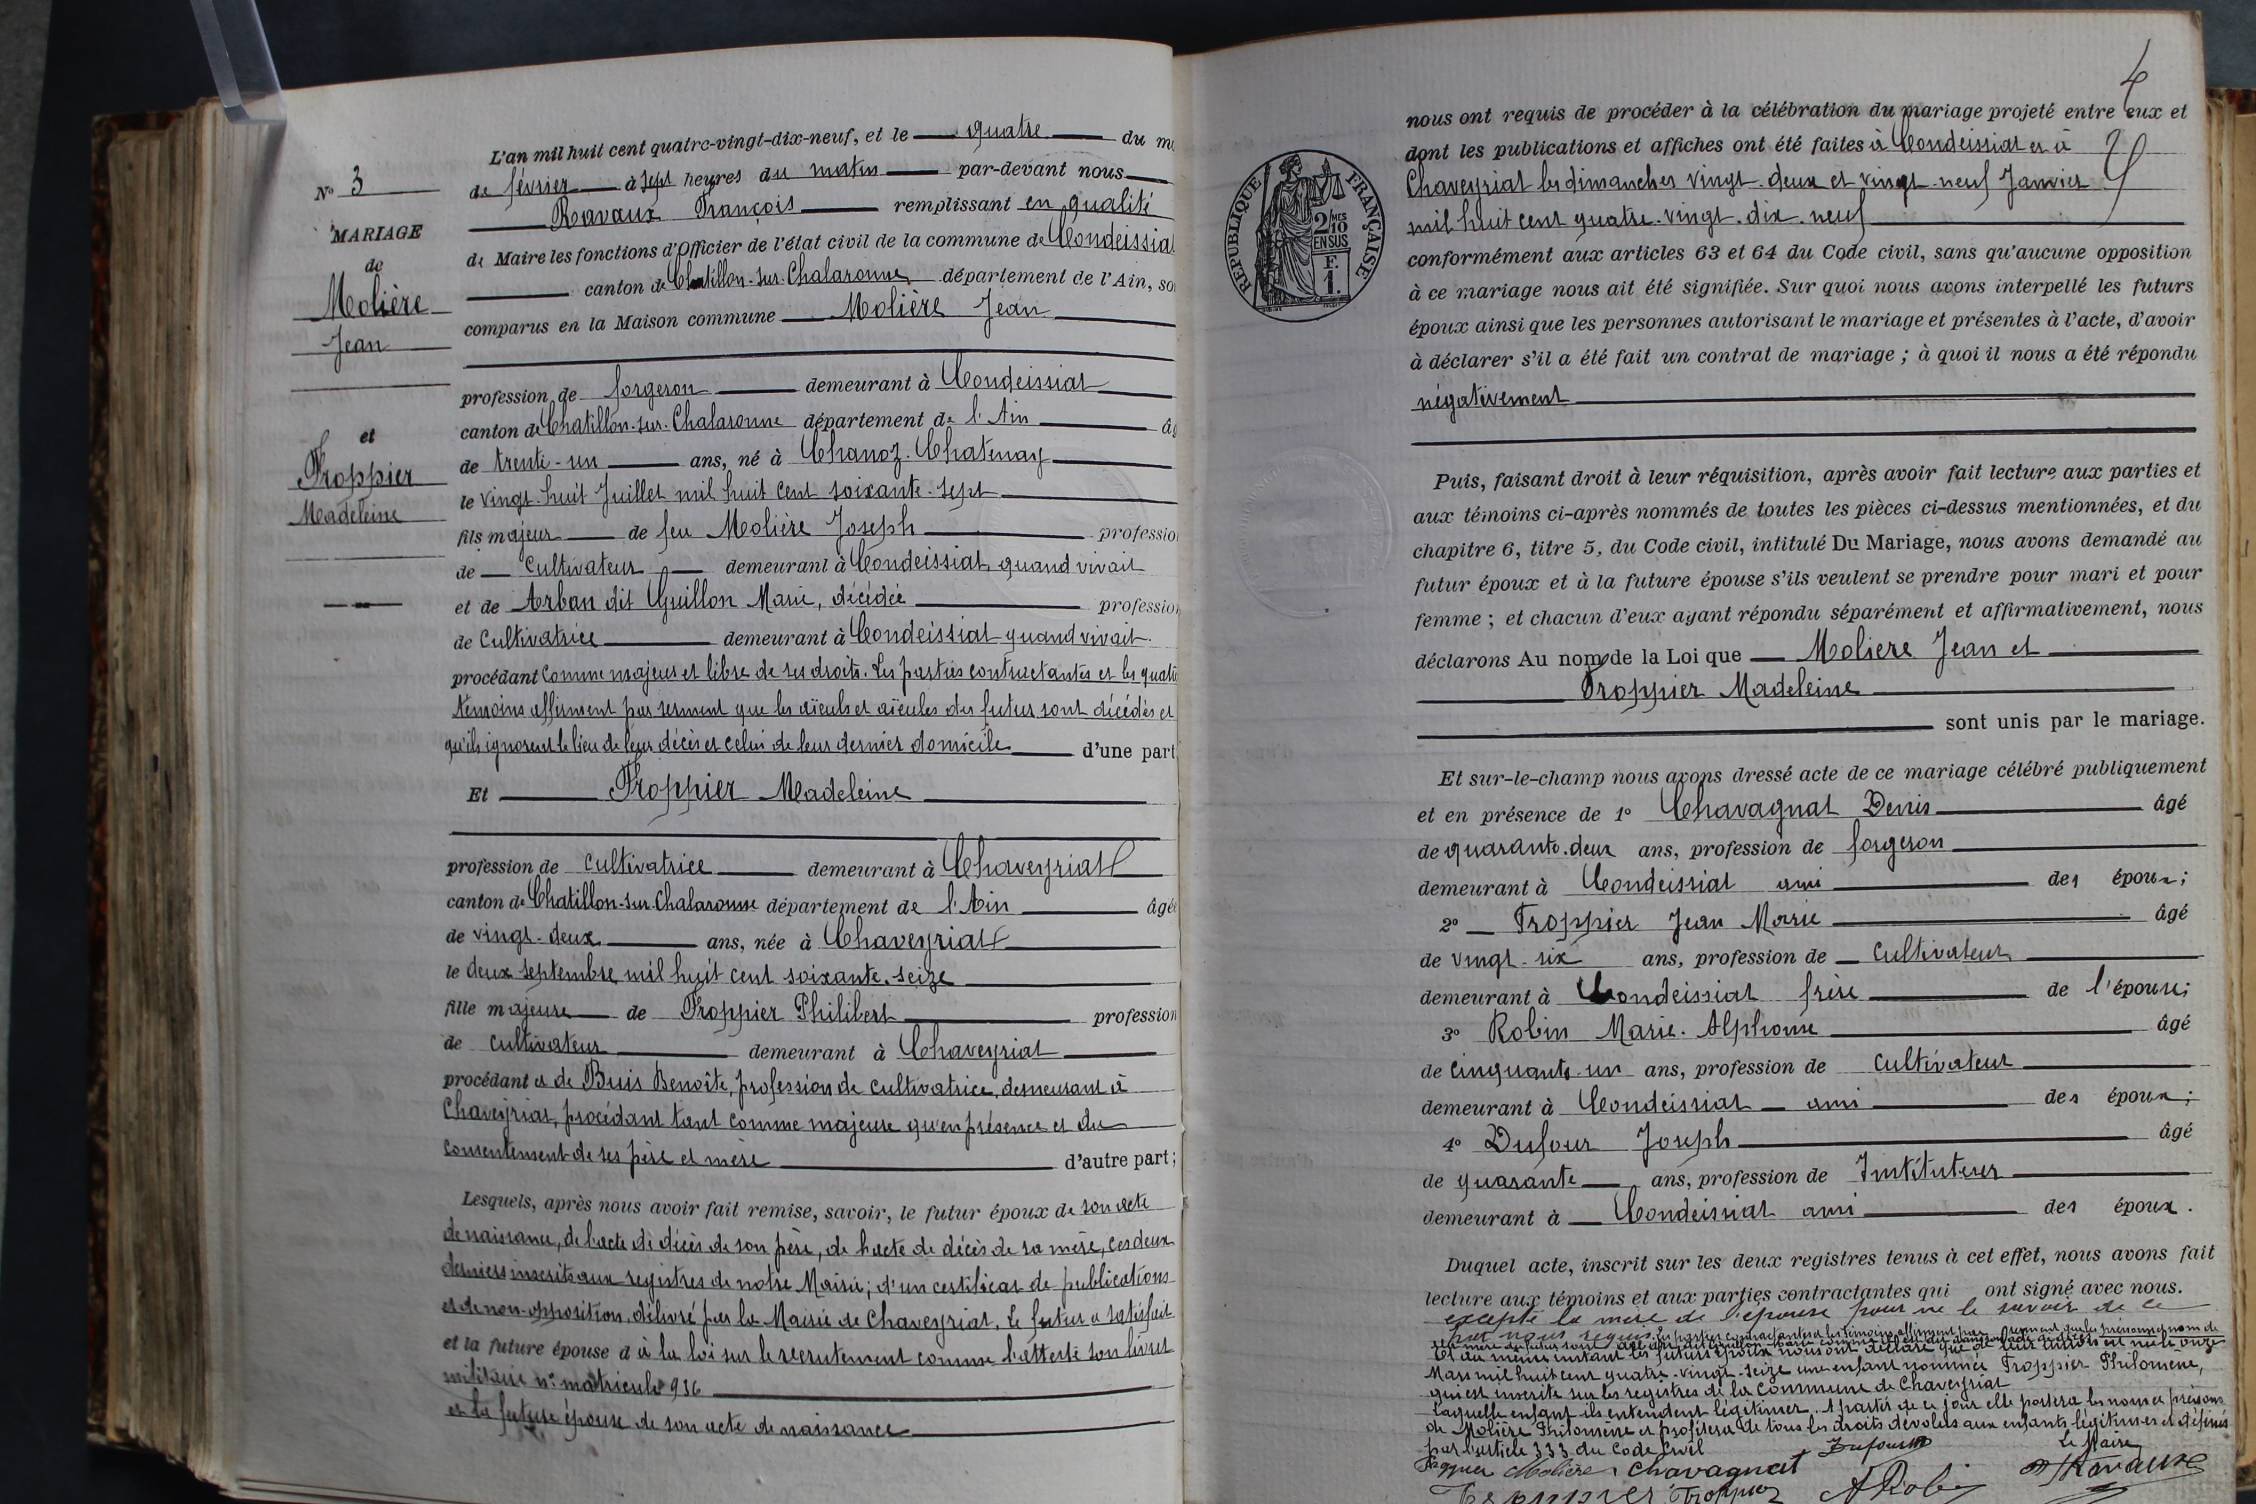 L'an mil huit cent quatre-vingt-dix-neuf, et le quatre du m
de février à sept heures du matin par-devant nous
Ravaux François remplissant en qualité
de Maire les fonctions d'Officier de l'état civil de la commune de Condeissia
canton de Chatillon-sur-Chalaronne département de l'Ain, so
comparus en la Maison commune Molière Jean
profession de forgeron demeurant à Condeissiat
canton de Chatillon-sur-Chalaronne département de l'Ain âg
de trente-un ans, né à Chanoz-Chatenay
le vingt-huit Juillet mil huit cent soixante-sept
fils majeur de feu Molière Joseph professio
de Cultivateur demeurant à Condeissiat quand vivait
et de Arban dit Guillon Marie, décédée profession
de Cultivatrice demeurant à Condeissiat quand vivait
procédant comme majeur et libre de ses droits. Les parties contractantes et les quatre
témoins affirment par serment que les aïeuls et aïeules du futur sont décédés et
qu'ils ignorent le lieu de leur décès et celui de leur dernier domicile d'une part
Et Troppier Madeleine
profession de cultivatrice demeurant à Chaveyriat
canton de Chatillon-sur-Chalaronne département de l'Ain âgée
de vingt-deux ans, née à Chaveyriat
le deux septembre mil huit cent soixante-seize
fille majeure de Troppier Philibert profession
de cultivateur demeurant à Chaveyriat
procédant et de Buis Benoîte, profession de cultivatrice, demeurant à
Chaveyriat, procédant tant comme majeure qu'en présence et du
consentement de ses père et mère d'autre part;
Lesquels, après nous avoir fait remise, savoir, le futur époux de son acte
de naissance, de l'acte de décès de son père, de l'acte de décès de sa mère, ces deux
derniers inscrits aux registres de notre Mairie; d'un certificat de publications
et de non-opposition, délivré par la Mairie de Chaveyriat. Le futur a satisfait
et la future épouse d à la loi sur le recrutement comme l'atteste son livret
militaire n° matricule 936
et la future épouse de son acte de naissance
N° 3
MARIAGE
de
Molière
Jean
et
Troppier
Madeleine
4
nous ont requis de procéder à la célébration du mariage projeté entre eux et
dont les publications et affiches ont été faites à Condeissiat et à
Chaveyriat les dimanches vingt-deux et vingt-neuf Janvier
mil huit cent quatre-vingt-dix-neuf
conformément aux articles 63 et 64 du Code civil, sans qu'aucune opposition
à ce mariage nous ait été signifiée. Sur quoi nous avons interpellé les futurs
époux ainsi que les personnes autorisant le mariage et présentes à l'acte, d'avoir
à déclarer s'il a été fait un contrat de mariage; à quoi il nous a été répondu
négativement
Puis, faisant droit à leur réquisition, après avoir fait lecture aux parties et
aux témoins ci-après nommés de toutes les pièces ci-dessus mentionnées, et du
chapitre 6, titre 5, du Code civil, intitulé Du Mariage, nous avons demandé au
futur époux et à la future épouse s'ils veulent se prendre pour mari et pour
femme; et chacun d'eux ayant répondu séparément et affirmativement, nous
déclarons Au nom de la Loi que Molière Jean et
Troppier Madeleine
sont unis par le mariage.
Et sur-le-champ nous avons dressé acte de ce mariage célébré publiquement
et en présence de 1° Chavagnat Denis âgé
de quarante-deux ans, profession de forgeron
demeurant à Condeissiat ami des époux;
2° Troppier Jean Marie âgé
de vingt-six ans, profession de Cultivateur
demeurant à Condeissiat frère de l'épouse;
3° Robin Marie-Alphonse âgé
de cinquante-un ans, profession de cultivateur
demeurant à Condeissiat ami des époux;
4° Dufour Joseph âgé
de quarante ans, profession de Instituteur
demeurant à Condeissiat ami des époux.
Duquel acte, inscrit sur les deux registres tenus à cet effet, nous avons fait
lecture aux témoins et aux parties contractantes qui ont signé avec nous.
excepté la mère de l'épouse pour ne le savoir de ce
par nous requis. Les parties contractantes et les témoins affirment par serment que les prénoms et nom de
la mère du futur sont
Et au même instant les futurs époux nous ont déclaré que de leur union est née le onze
Mars mil huit cent quatre-vingt-seize une enfant nommée Troppier Philomène,
qui est inscrite sur les registres de la Commune de Chaveyriat
laquelle enfant ils entendent légitimer. A partir de ce jour elle portera les nom et prénoms
de Molière Philomène et profitera de tous les droits dévolus aux enfants légitimes et définis
par l'article 333 du Code Civil
Dufour Le Maire
Molière Chavagnat Ravaux
Troppier ARobin
REPUBLIQUE FRANÇAISE
2/10 MES
EN SUS
F.
1.